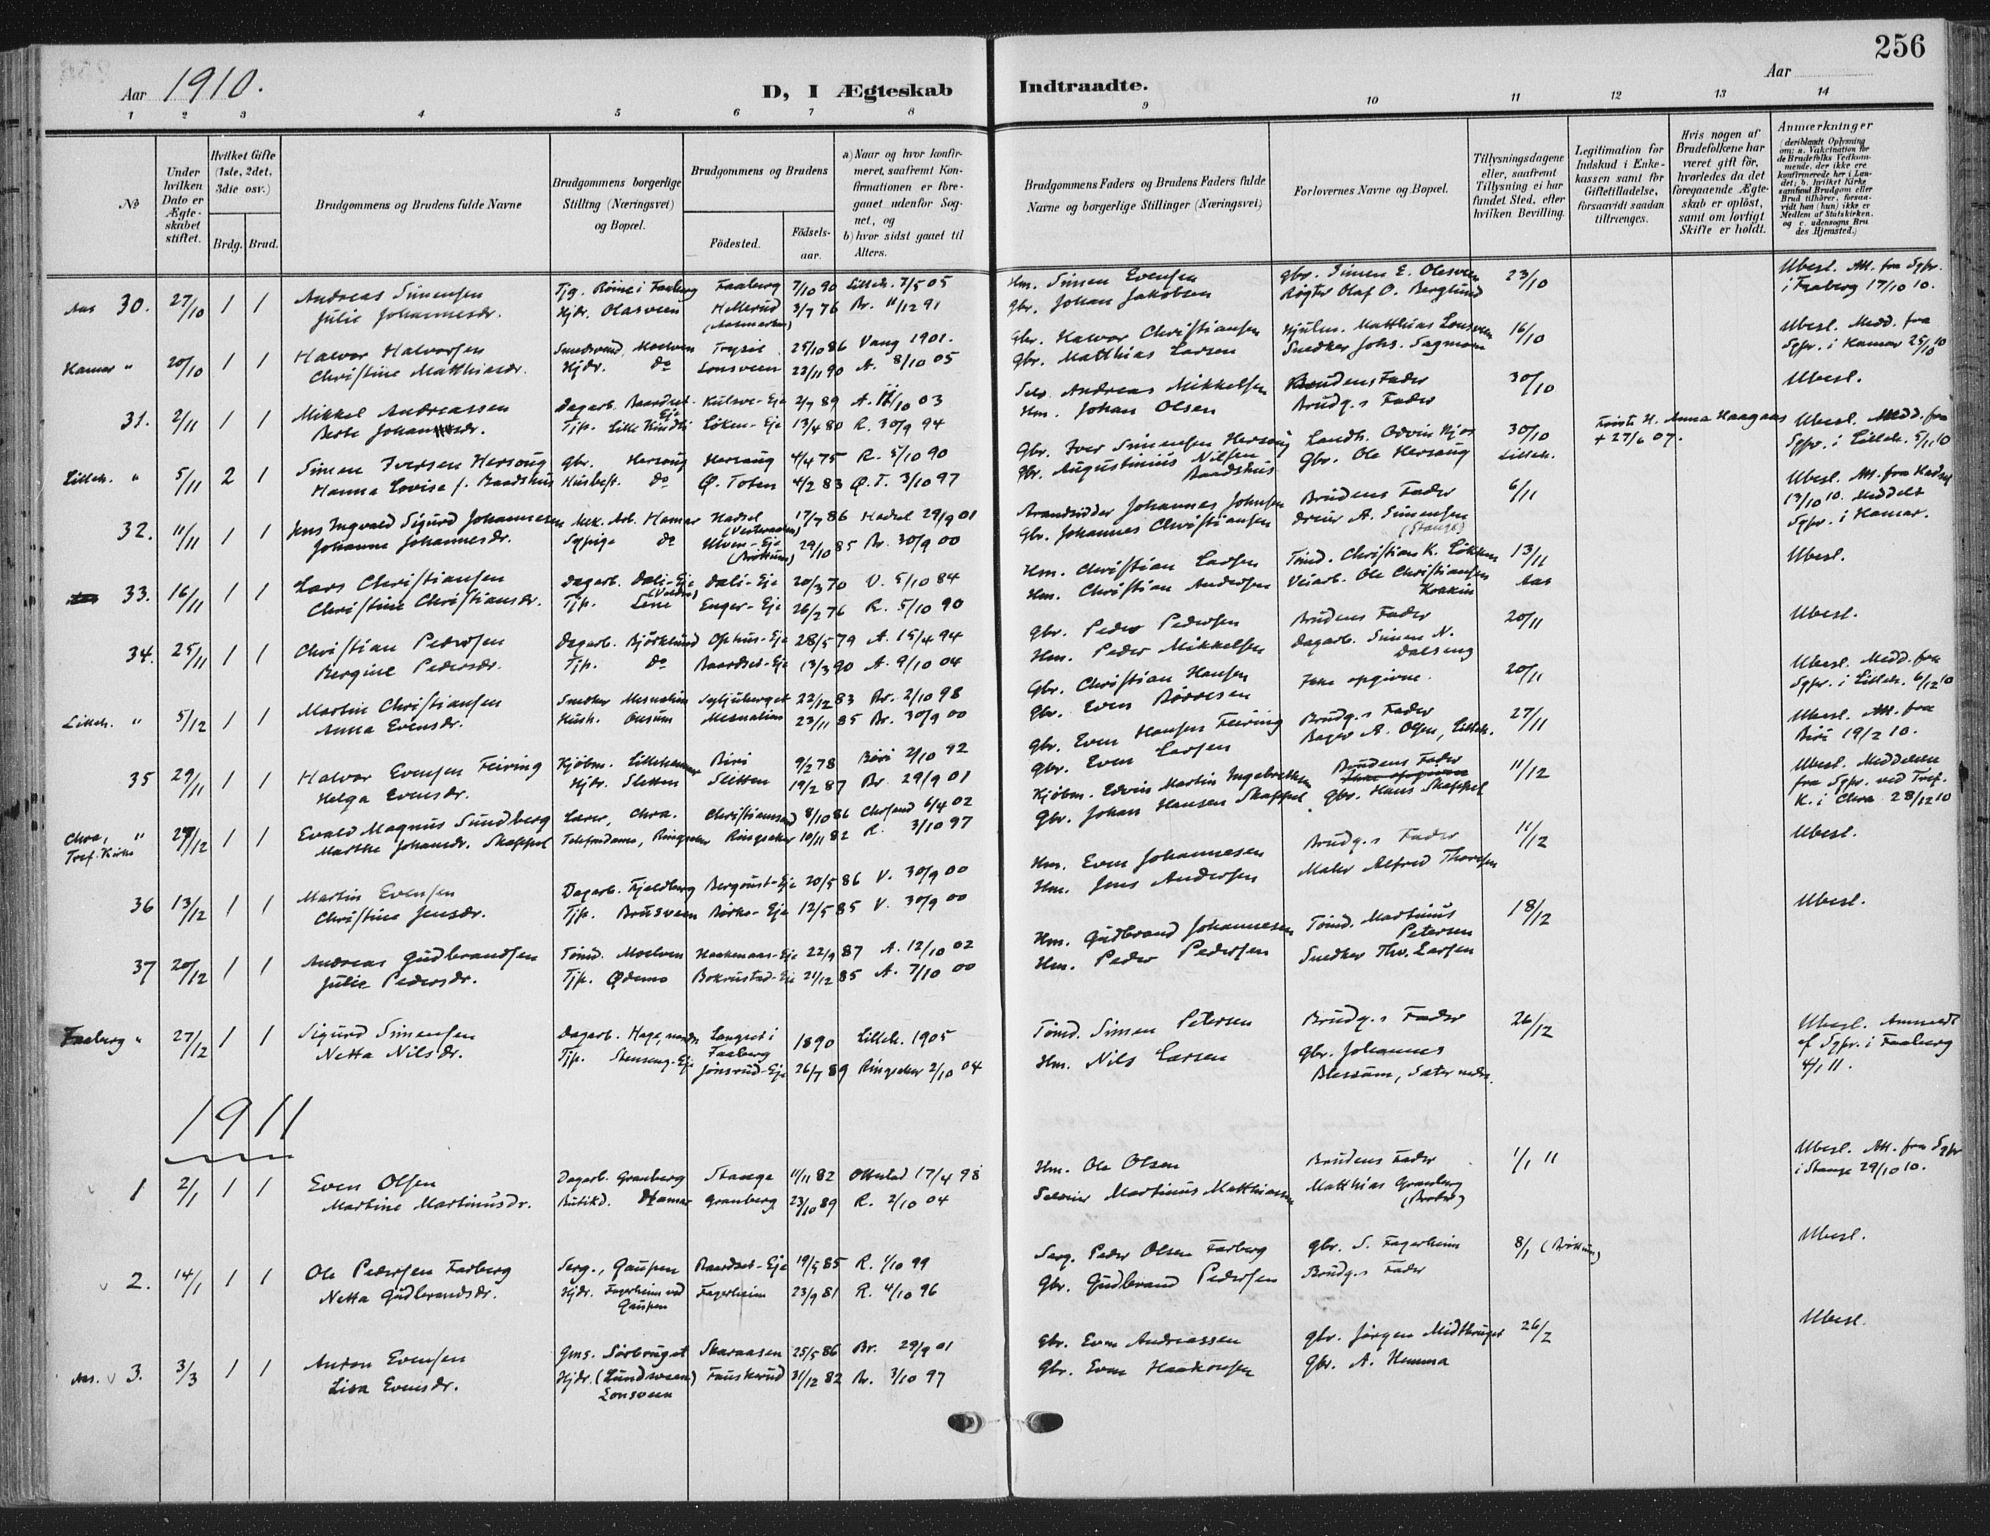 256
Aar 1910.
D, I Ægteskab Indtraadte.
Aar
1 2 3 4 5 6 7 8 9 10 11 12 13 14
No
Under hvilken Dato er Ægteskabet stiftet.
Hvilket Gifte (1ste, 2det, 3die osv.)
Brdg. Brud.
Brudgommens og Brudens fulde Navne
Brudgommens borgerlige Stilling (Næringsvei) og Bopæl.
Brudgommens og Brudens
Födested.
Födsels-aar.
a) Naar og hvor konfirmeret, saafremt Konfirmationen er foregaaet udenfor Sognet, og
b) hvor sidst gaaet til Alters.
Brudgommens Faders og Brudens Faders fulde Navne og borgerlige Stillinger (Næringsvei)
Forlovernes Navne og Bopæl.
Tillysningsdagene eller, saafremt Tillysning ei har fundet Sted, efter hvilken Bevilling.
Legitimation for Indskud i Enkekassen samt for Giftetilladelse, forsaavidt saadan tiltrænges.
Hvis nogen af Brudefolkene har været gift för, hvorledes da det foregaaende Ægteskab er oplöst, samt om lovligt Skifte er holdt.
Anmærkninger
(deriblandt Oplysning om: a. Vakcination for de Brudefolks Vedkommende, der ikke ere konfirmerede her i Landet; b. hvilket Kirkesamfund Brudgom eller Brud tilhører, forsaavidt han (hun) ikke er Medlem af Statskirken, og c. udensogns Brudes Hjemsted.)
Aas 30. 27/10 1 1 Andreas Simensen Faaberg 7/10 90 Lilleh. 7/5 05 Hm. Simen Evensen gbr. Simen E. Olasveen 23/10 Ubesl. Att. fra Sgpr.
Julie Johannesdr. Hjdr. Olasveen Hellerud 3/7 76 Br. 11/12 91 gbr. Johan Jakobsen Røgter Olaf O. Berglund i Faaberg 17/10 10.
Hamar " 20/10 1 1 Halvor Halvorsen Moelven Trysil 25/10 86 Vang 1901. Gbr. Halvor Christiansen Hjulm. Matthias Lonsveen 16/10 Ubesl. Medd. fra
Christine Matthiasdr. Hjdr. do Lonsveen 22/11 90 A. 8/10 05 gbr. Matthias Larsen Snedker Johs. Sagmoen Sgpr. i Hamar 25/10 10
31. 2/11 1 1 Mikkel Andreassen Dagarb. Baardset-Eje 2/7 89 03 Selv. Andreas Mikkelsen Brudens Fader 30/10 Ubesl.
Berte Johansdr. Tjp. Løken-Eje 13/4 80 R. 30/9 94 Hm. Johan Olsen Brudg.s Fader
Lilleh. " 5/11 2 1 Simen Iversen Hersoug gbr. Hersoug Hersoug 4/4 75 R. 5/10 90 Gbr. Iver Simensen Hersoug Landh. Odvin Kjos 30/10 Første H. Anna Haagaas Ubesl. Medd. fra
Hanna Lovise f. Baadshus Husbest. do Ø. Toten 4/2 83 Ø. T. 3/10 97 gbr. Augustinius Nilsen Baadshus Gbr. Ole Hersoug Lilleh. + 27/6 07. Sgpr. i Lilleh. 5/11 10
32. 11/11 1 1 Jens Ingvald Sigurd Johannesen Mek. Arb. Hamar Hadsel 17/7 86 Hadsel 29/9 01 Johannes Johnsen Brudens Fader 6/11 Ubesl. Att. fra Hadsel
Johanne Johannesdr. Sypige do Ulven-Eje 29/10 85 Br. 30/9 00 Gbr. Johannes Christiansen Dreier A. Simensen (Stange) 13/10 10. Meddelt Sgpr. i Hamar.
33. 16/11 1 1 Lars Christiansen Dagarb. Dali-Eje Dali-Eje 20/3 70 V. 5/10 84 Hm. Christian Larsen Tømd. Christian K. Løkken 13/11 Ubesl.
Christine Christiansdr. Tjp. Enger-Eje 26/2 76 R. 5/10 90 Hm. Christian Andersen Veiarb. Ole Christiansen Aas
34. 25/11 1 1 Christian Pedersen Dagarb. Bjørklund Ophus-Eje 28/5 79 A. 15/4 94 Gbr. Peder Pedersen Brudens Fader 20/11 Ubesl.
Bergine Pedersdr. Tjp. do Baardset-Eje 13/3 90 A. 9/10 04 Hm. Peder Mikkelsen Dagarb. Simen N. Dalseng
Lilleh. " 5/12 1 1 Martin Christiansen Snedker Mesnalien 22/12 83 Br. 2/10 98 Gbr. Christian Hansen Ikke opgivne. 20/11 Ubesl. Medd. fra
Anna Evensdr. Hush. Mesnalien 23/11 85 Br. 30/9 00 Gbr. Even Børresen Sgpr. i Lilleh. 6/12 10
35 29/11 1 1 Halvor Evensen Feiring Kjøbm. Lillehammer Biri 9/2 78 Biri 2/10 92 gbr. Even Hansen Feiring Brudg.s Fader 27/11 Ubesl. Att. fra
Helga Evensdr. Hjdr. Sletten Sletten 19/2 87 Br. 29/9 01 gbr. Even Larsen Bager A. Olsen, Lilleh. Biri 19/2 10.
Chra, Tref. Kirke " 28/12 1 1 Evald Magnus Sundberg Lærer, Chra. Christiansand 8/10 86 Chrsand 6/4 02 Kjøbm. Edvin Martin Ingebretsen Brudens Fader 11/12 Ubesl. Meddelelse
Marthe Johansdr. Skappel Telefondame, Ringsaker Ringsaker 10/11 82 R. 3/10 97 Gbr. Johan Hansen Skappel gbr. Hans Skappel fra Sgpr. ved Tref. K. i Chra 28/12 10
36 13/12 1 1 Martin Evensen Dagarb. Fjeldberg Bergqust-Eje 20/5 86 V. 30/9 00 Hm. Even Johannesen Brudg.s Fader 11/12 Ubesl.
Christine Jensdr. Tjp. Brusveen Børke-Eje 12/5 85 V. 30/9 00 Hm. Jens Andersen Maler Alfred Thoresen
37 20/12 1 1 Andreas Gudbrandsen Tømd. Moelven 22/9 87 A. 12/10 02 Hm. Gudbrand Johannesen Tømd. Martinius Petersen 18/12 Ubesl.
Julie Pedersdr. Tjp. Ødemo Bokrustad-Eje 21/12 85 A. 7/10 00 Hm. Peder Pedersen Snedker Thv. Larsen
Faaberg " 27/12 1 1 Sigurd Simensen Dagarb. Hage nedre i Faaberg 1890 Lilleh. 1905 Tømd. Simen Petersen Brudg.s Fader 26/12 Ubesl. Anmeldt
Netta Nilsdr. Tjp. Stenseng-Eje Jønsrud-Eje 26/7 89 Ringsaker 2/10 04 Hm. Nils Larsen gbr. Johannes Blessum, Sæter nedre. af Sgpr. i Faaberg 4/1 11.
1911
1 2/1 1 1 Even Olsen Dagarb. Granberg Stange 11/11 82 Ottestad 17/4 98 Hm. Ole Olsen Brudens Fader 1/1 11 Ubesl. Att. fra Sgpr
Martine Martinusdr. Butikd. Hamar Granberg 23/10 89 R. 2/10 04 Selveier Martinus Matthiassen Matthias Granberg (Broder) i Stange 29/10 10.
2. 14/1 1 1 Ole Pedersen Farberg Serg., Gaupen Baardset-Eje 19/5 85 R. 1/10 99 Serg. Peder Olsen Farberg gbr. S. Fagerheim 8/1 (Brøttum) Ubesl.
Netta Gudbrandsdr. Hjdr. Fagerheim ved Gaupen Fagerheim 23/9 81 R. 4/10 96 Gbr. Gudbrand Pedersen Brudg.s Fader
Aas. 3. 3/3 1 1 Anton Evensen Gms. Sørbruget Skaraasen 25/5 86 Br. 29/9 01 gbr. Even Andreassen gbr. Jørgen Midtbruget 26/2 Ubesl.
Lisa Evensdr. Hjdr. (Lundsveen) Lonsveen Fauskerud 31/12 82 Br. 3/10 97 Gbr. Even Haakonsen Gbr. A. Hemma